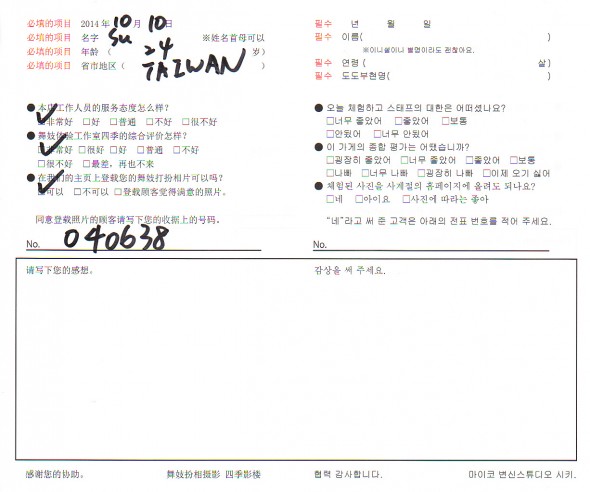 必填的项目 2014 年 10 月 10 日
必填的项目 名字 Su ※姓名首母可以
必填的项目 年龄 ( 24 岁)
必填的项目 省市地区 ( TAIWAN )
●本店工作人员的服务态度怎么样?
□非常好 □好 □普通 □不好 □很不好
●舞妓体验工作室四季的综合评价怎样?
□非常好 □很好 □好 □普通 □不好
□很不好 □最差，再也不来
●在我们的主页上登载您的舞妓打扮相片可以吗?
□可以 □不可以 □登载顾客觉得满意的照片。
同意登载照片的顾客请写下您的收据上的号码。
No. 040638
필수 년 월 일
필수 이름( )
※이니셜이니 별명이라도 괜찮아요.
필수 연령 ( 살)
필수 도도부현명( )
● 오늘 체험하고 스태프의 대한은 어떠셨나요?
□너무 좋았어 □좋았어 □보통
□안됐어 □너무 안됐어
● 이 가게의 종합 평가는 어땠습니까?
□굉장히 좋았어 □너무 좋았어 □좋았어 □보통
□나빠 □너무 나빠 □굉장히 나빠 □이제 오기 싫어
● 체험된 사진을 사계절의 홈페이지에 올려도 되나요?
□네 □아이요 □사진에 따라는 좋아
“네”라고 써 존 고객은 아래의 전표 번호를 적어 주세요.
No.
请写下您的感想。
감상을 써 주세요.
感谢您的协助。 舞妓扮相摄影 四季影楼
협력 감사합니다. 마이코 변신스튜디오 시키.